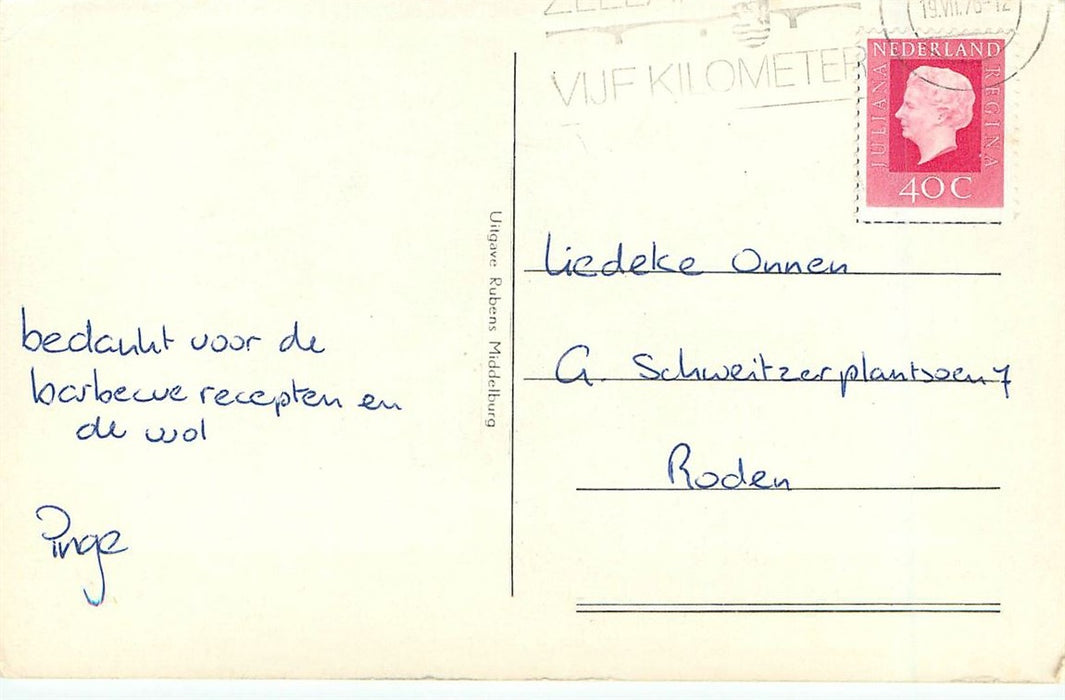 VIJF KILOMETER
19.VII.76-12
NEDERLAND
JULIANA
REGINA
40C
bedankt voor de
barbecue recepten en
de wol
Pinge
Uitgave Rubens Middelburg
Liedeke Onnen
A. Schweitzerplantsoen 7
Roden